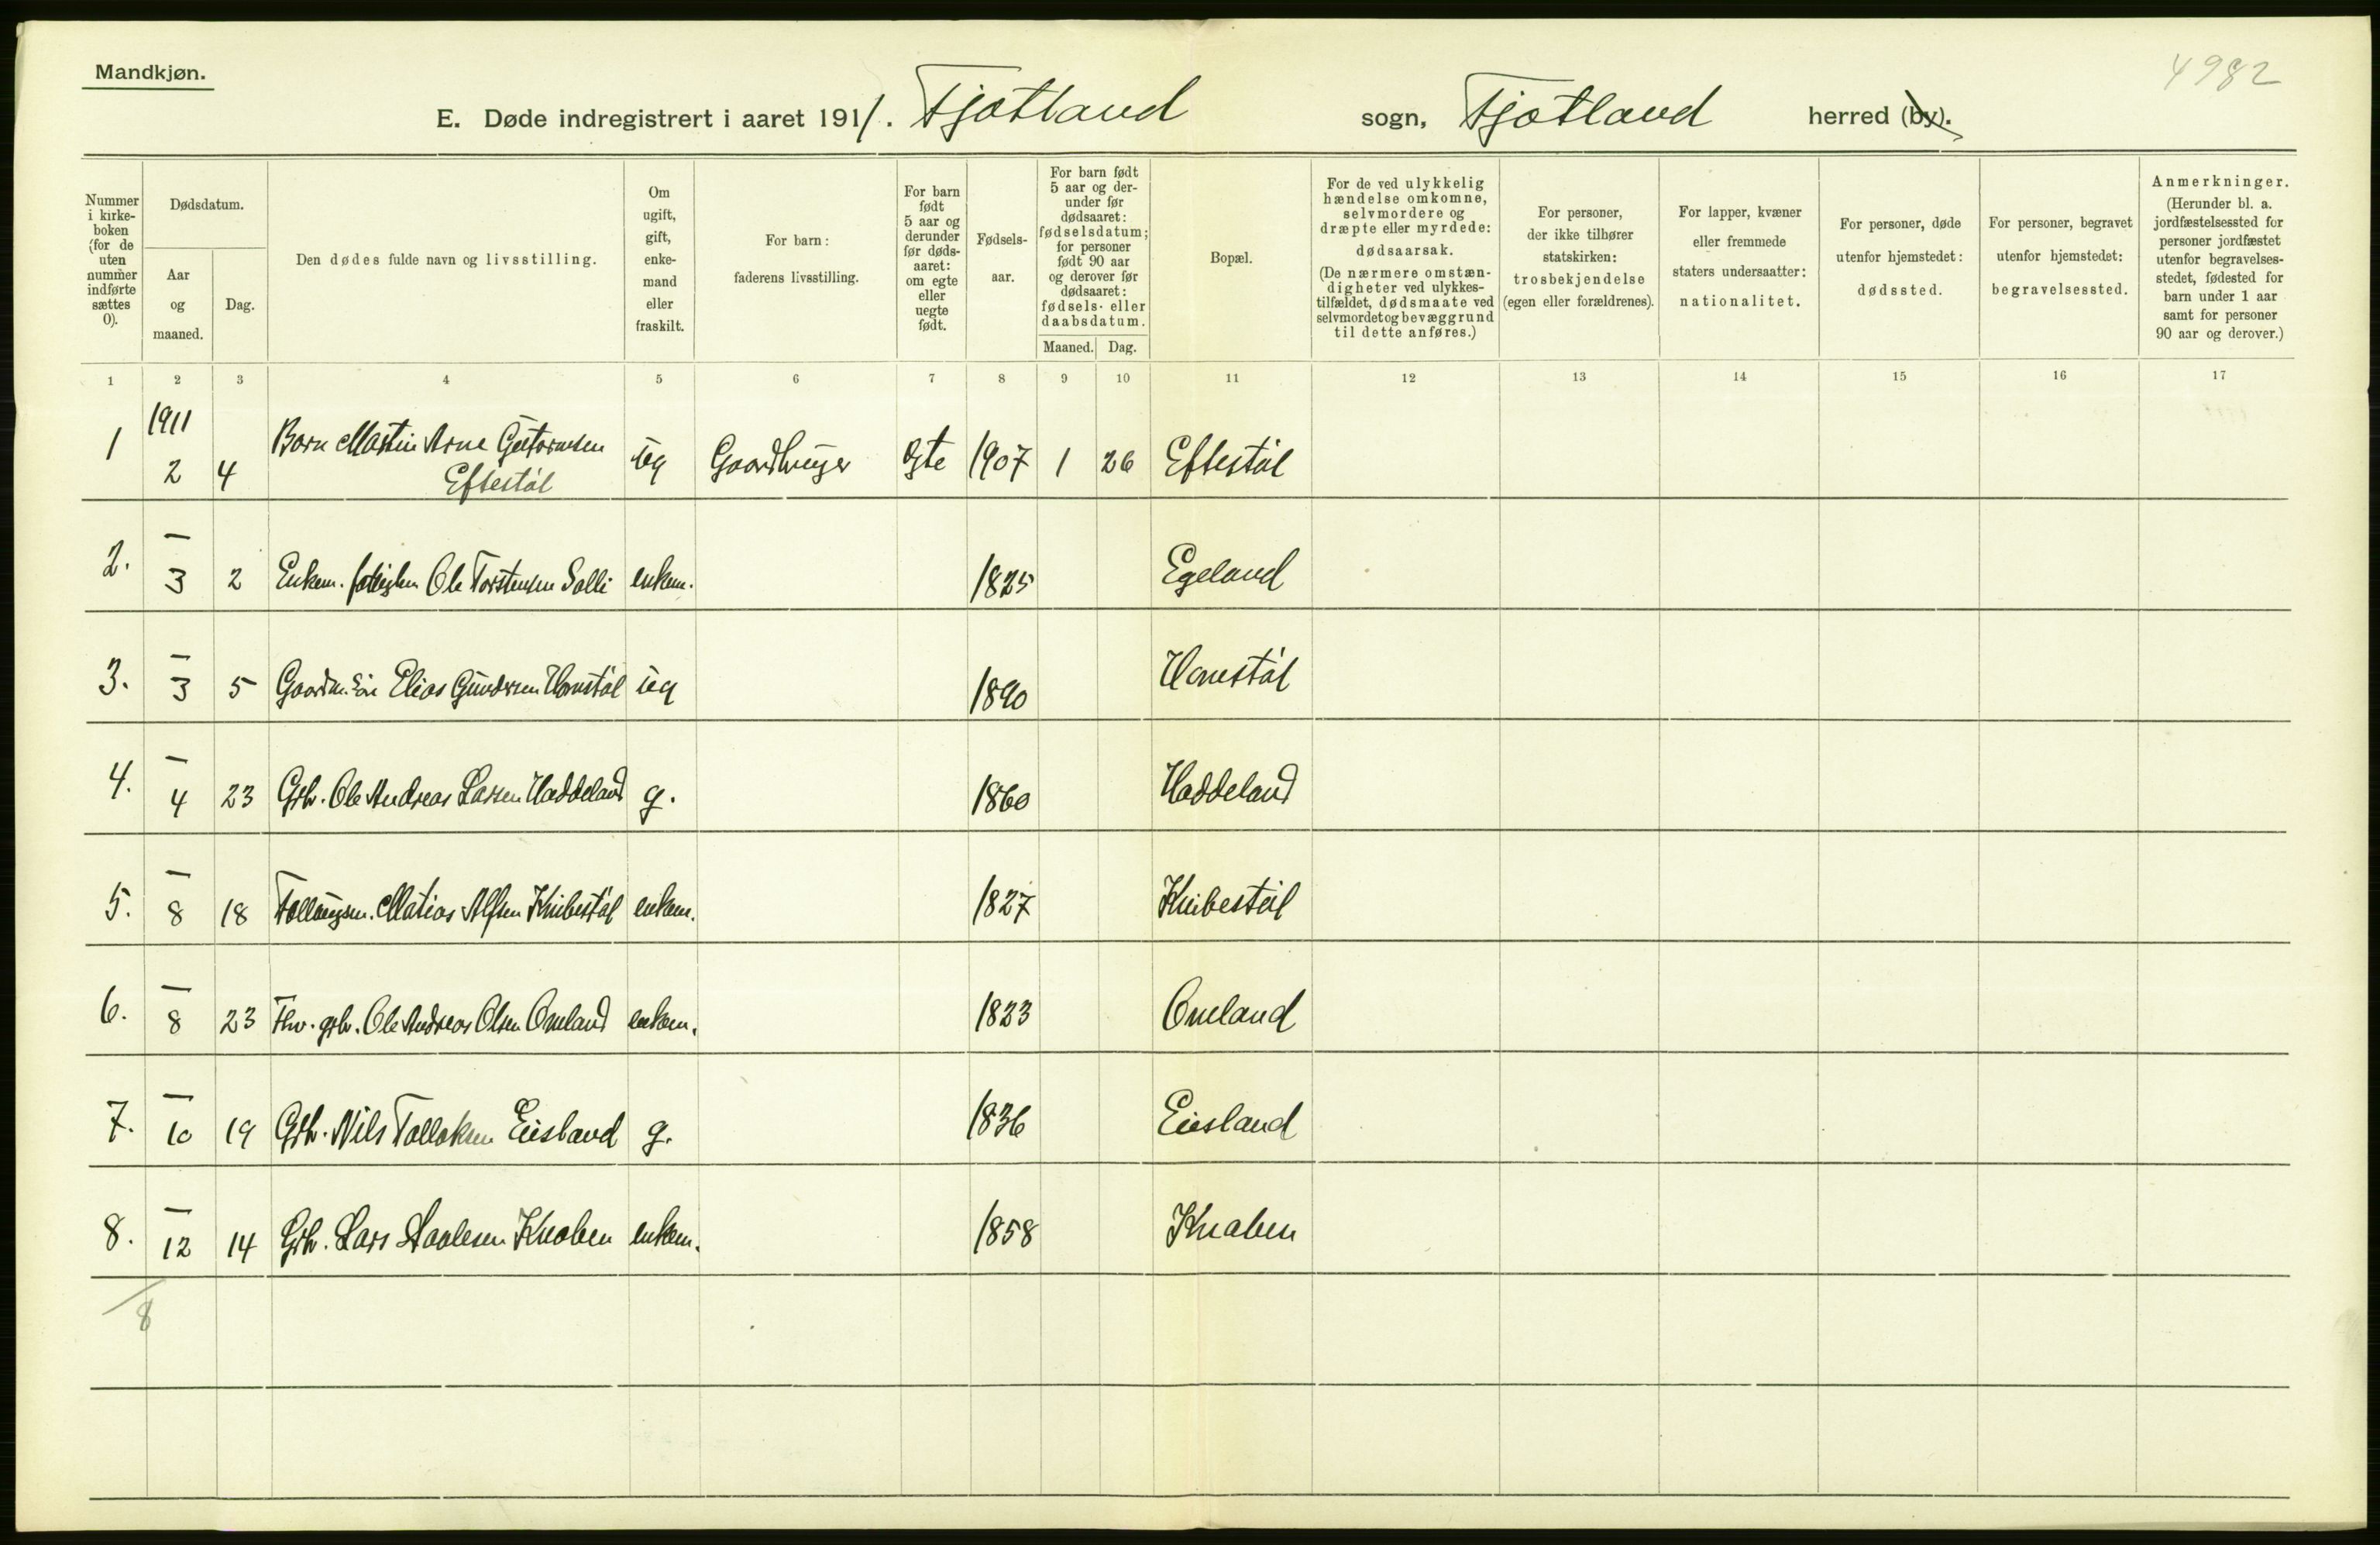 Mandkjøn.
4982
E. Døde indregistrert i aaret 1911. Fjotland sogn, Fjotland herred (by).
Nummer i kirke-boken (for de uten nummer indførte sættes 0).
Dødsdatum.
Aar og maaned.
Dag.
Den dødes fulde navn og livsstilling.
Om ugift, gift, enke-mand eller fraskilt.
For barn: faderens livsstilling.
For barn født 5 aar og derunder før døds-aaret: om egte eller uegte født.
Fødsels-aar.
For barn født 5 aar og der-under før dødsaaret: fødselsdatum; for personer født 90 aar og derover før dødsaaret: fødsels- eller daabsdatum.
Maaned. Dag.
Bopæl.
For de ved ulykkelig hændelse omkomne, selvmordere og dræpte eller myrdede: dødsaarsak. (De nærmere omstæn-digheter ved ulykkes-tilfældet, dødsmaate ved selvmordet og bevæggrund til dette anføres.)
For personer, der ikke tilhører statskirken: trosbekjendelse (egen eller forældrenes).
For lapper, kvæner eller fremmede staters undersaatter: nationalitet.
For personer, døde utenfor hjemstedet: dødssted.
For personer, begravet utenfor hjemstedet: begravelsessted.
Anmerkninger. (Herunder bl. a. jordfæstelsessted for personer jordfæstet utenfor begravelses-stedet, fødested for barn under 1 aar samt for personer 90 aar og derover.)
1 2 3 4 5 6 7 8 9 10 11 12 13 14 15 16 17
1 1911 2 4 Barn Martin Arne Guttormsen Eftestøl ug Gaardbruger Egte 1907 1 26 Eftestøl
2. — 3 2 Enkem. Ole Torstensen Solli enkem. 1825 Egeland
3. — 3 5 Gaardm. søn Elias Gundersen Homstøl ug 1890 Homstøl
4. — 4 23 Grb. Ole Andreas Larsen Haddeland g. 1860 Haddeland
5. — 8 18 Follaugsm. Matias Alfsen Knibestøl enkem. 1827 Knibestøl
6. — 8 23 Fhv. grb. Ole Andreas Olsen Omland enkem. 1823 Omland
7. — 10 19 Grb. Nils Tollaksen Eiesland g. 1836 Eiesland
8. — 12 14 Grb. Lars Staalesen Knaben enkem. 1858 Knaben
8